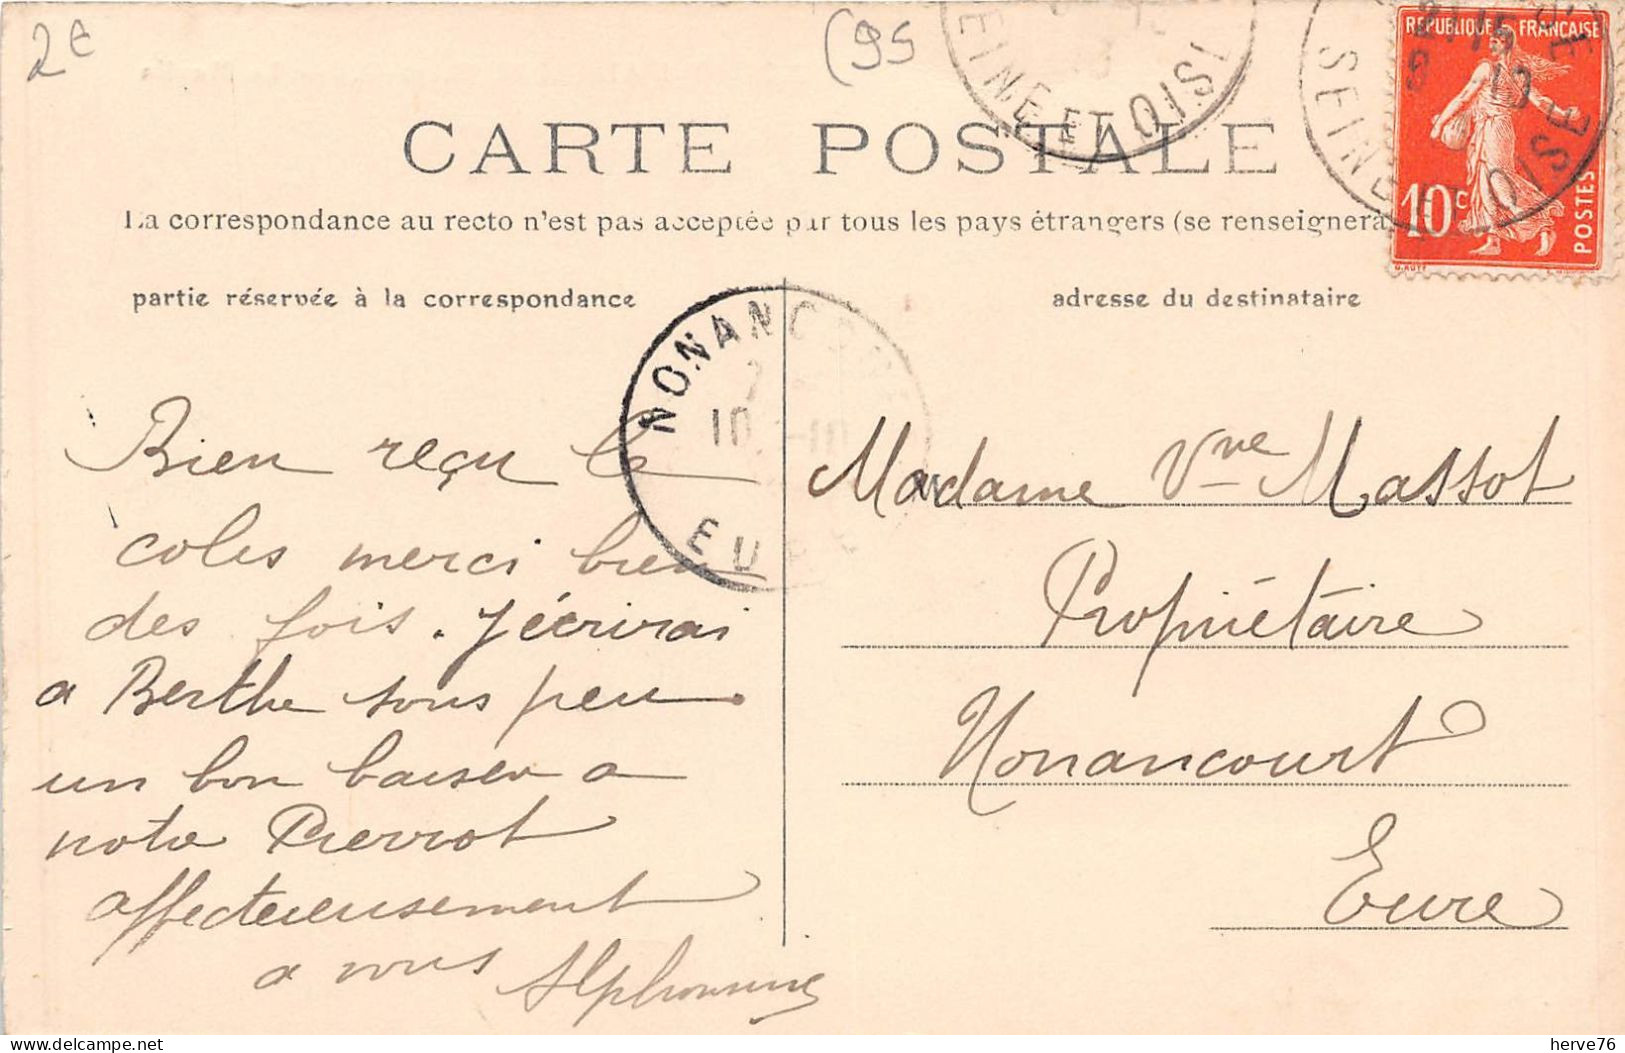 2e
(95
SEINE ET OISE
21 15
SEINE ET OISE
REPUBLIQUE FRANÇAISE
10c
POSTES
CARTE POSTALE
La correspondance au recto n'est pas acceptée par tous les pays étrangers (se renseigner à
partie réservée à la correspondance
adresse du destinataire
NONANCOURT
10
EURE
Bien reçu le
colis merci bien
des fois. J'écrirai
a Berthe sous peu
un bon baiser a
notre Pierrot
affectueusement
a vous Alphonsine
Madame Vve Massot
Propriétaire
Nonancourt
Eure
herve76